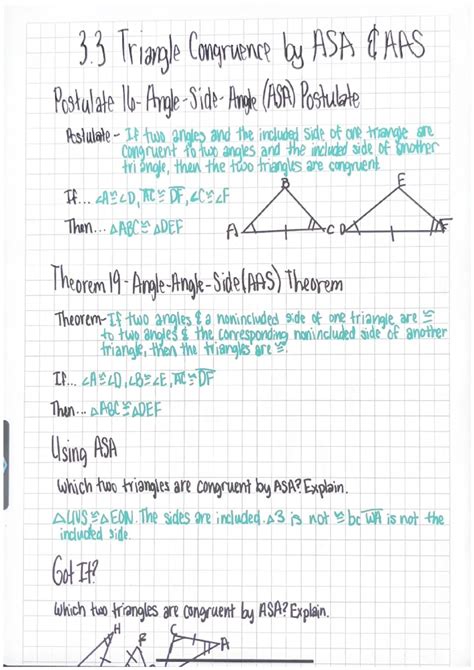 3.3 Triangle Congruence by ASA & AAS
Postulate 16-Angle-Side-Angle (ASA) Postulate
Postulate - If two angles and the included side of one triangle are
congruent to two angles and the included side of another
triangle, then the two triangles are congruent
If... ∠A≅∠D, AC≅DF, ∠C≅∠F
Then... △ABC≅△DEF
B E
A C D F
Theorem 19-Angle-Angle-Side (AAS) Theorem
Theorem- If two angles & a nonincluded side of one triangle are ≅
to two angles & the corresponding nonincluded side of another
triangle, then the triangles are ≅.
If... ∠A≅∠D, ∠B≅∠E, AC≅DF
Then... △ABC≅△DEF
Using ASA
Which two triangles are congruent by ASA? Explain.
△UVS≅△EON. The sides are included. △3 is not ≅ bc WA is not the
included side.
Got It?
Which two triangles are congruent by ASA? Explain.
H R C A